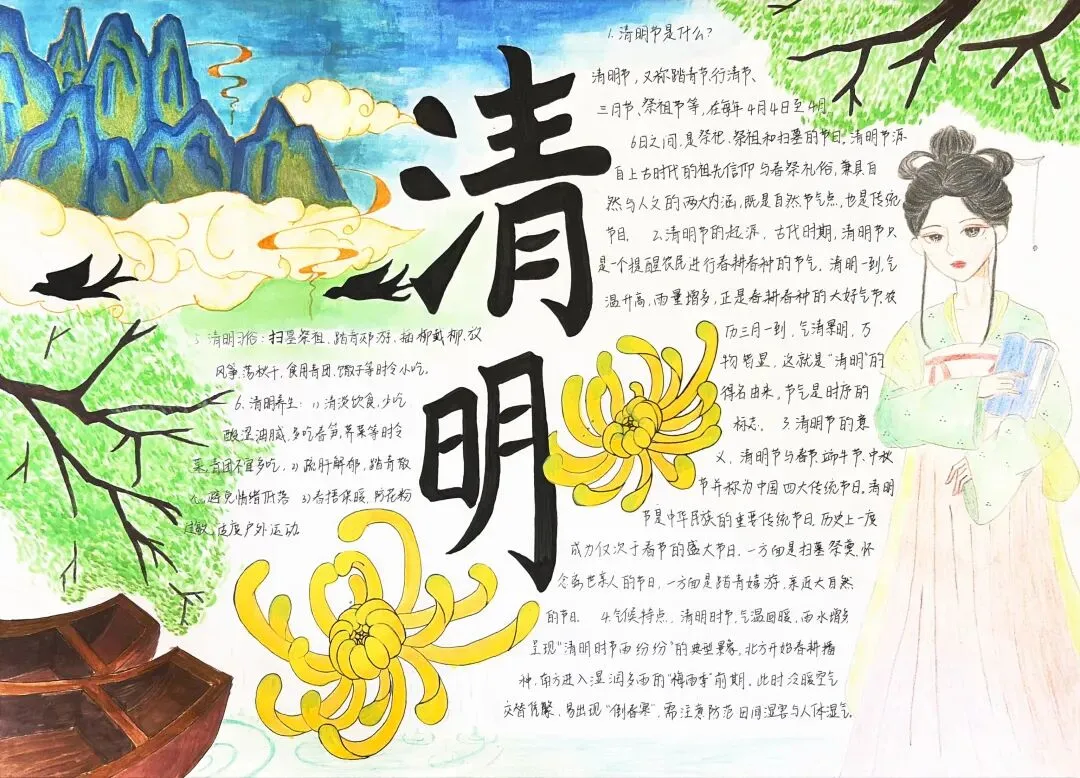 清明
1. 清明节是什么?
清明节，又称踏青节、行清节、
三月节、祭祖节等，在每年4月4日至4月
6日之间，是祭祀、祭祖和扫墓的节日。清明节源
自上古时代的祖先信仰与春祭礼俗，兼具自
然与人文的两大内涵，既是自然节气点，也是传统
节日。 2. 清明节的起源，古代时期，清明节只
是一个提醒农民进行春耕春种的节气，清明一到，气
温升高，雨量增多，正是春耕春种的大好气节。农
历三月一到，气清景明，万
物皆显，这就是“清明”的
得名由来，节气是时序的
标志。 3. 清明节的意
义，清明节与春节、端午节、中秋
节并称为中国四大传统节日。清明
节是中华民族的重要传统节日，历史上一度
成为仅次于春节的盛大节日。一方面是扫墓祭奠、怀
念离世亲人的节日，一方面是踏青嬉游、亲近大自然
的节日。 4. 气候特点，清明时节，气温回暖，雨水增多
呈现“清明时节雨纷纷”的典型景象，北方开始春耕播
种，南方进入湿润多雨的“梅雨季”前期。此时冷暖空气
交替频繁，易出现“倒春寒”，需注意防范田间湿害与人体湿气。
5. 清明习俗：扫墓祭祖，踏青郊游，插柳戴柳，放
风筝，荡秋千，食用青团、馓子等时令小吃。
6. 清明养生： 1) 清淡饮食，少吃
酸涩油腻，多吃春笋、荠菜等时令
菜，青团不宜多吃。 2) 疏肝解郁，踏青散
心，避免情绪低落 3) 春捂保暖，防花粉
过敏，适度户外运动。